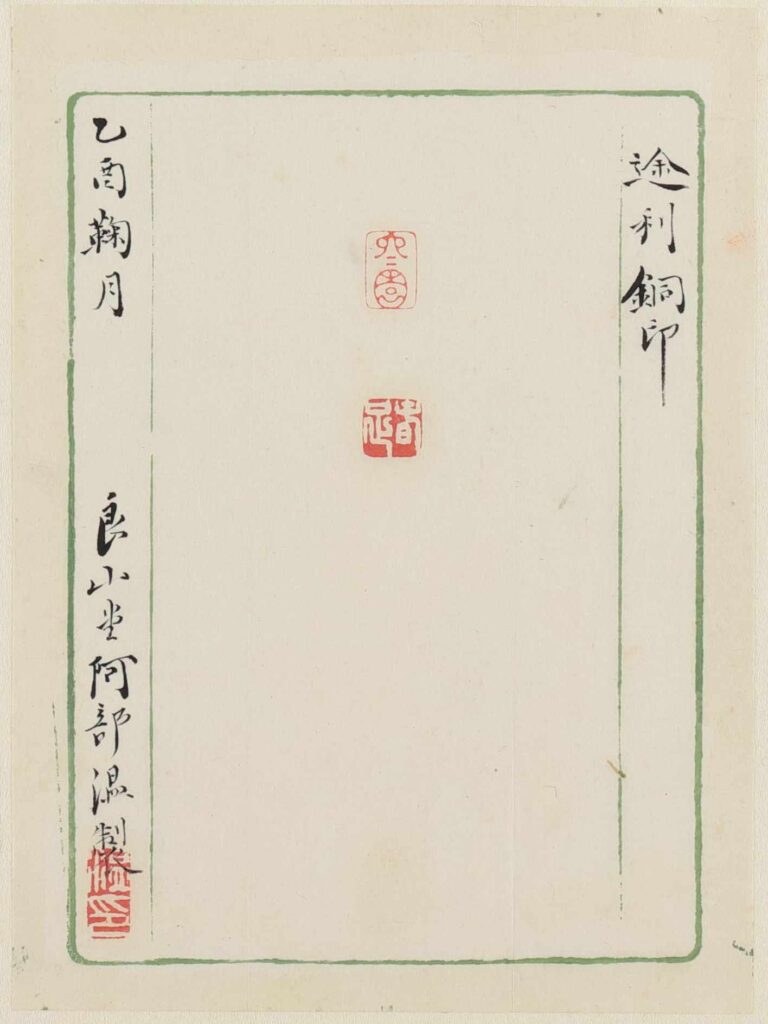 途利銅印
乙酉鞠月
良山堂阿部温製
温印